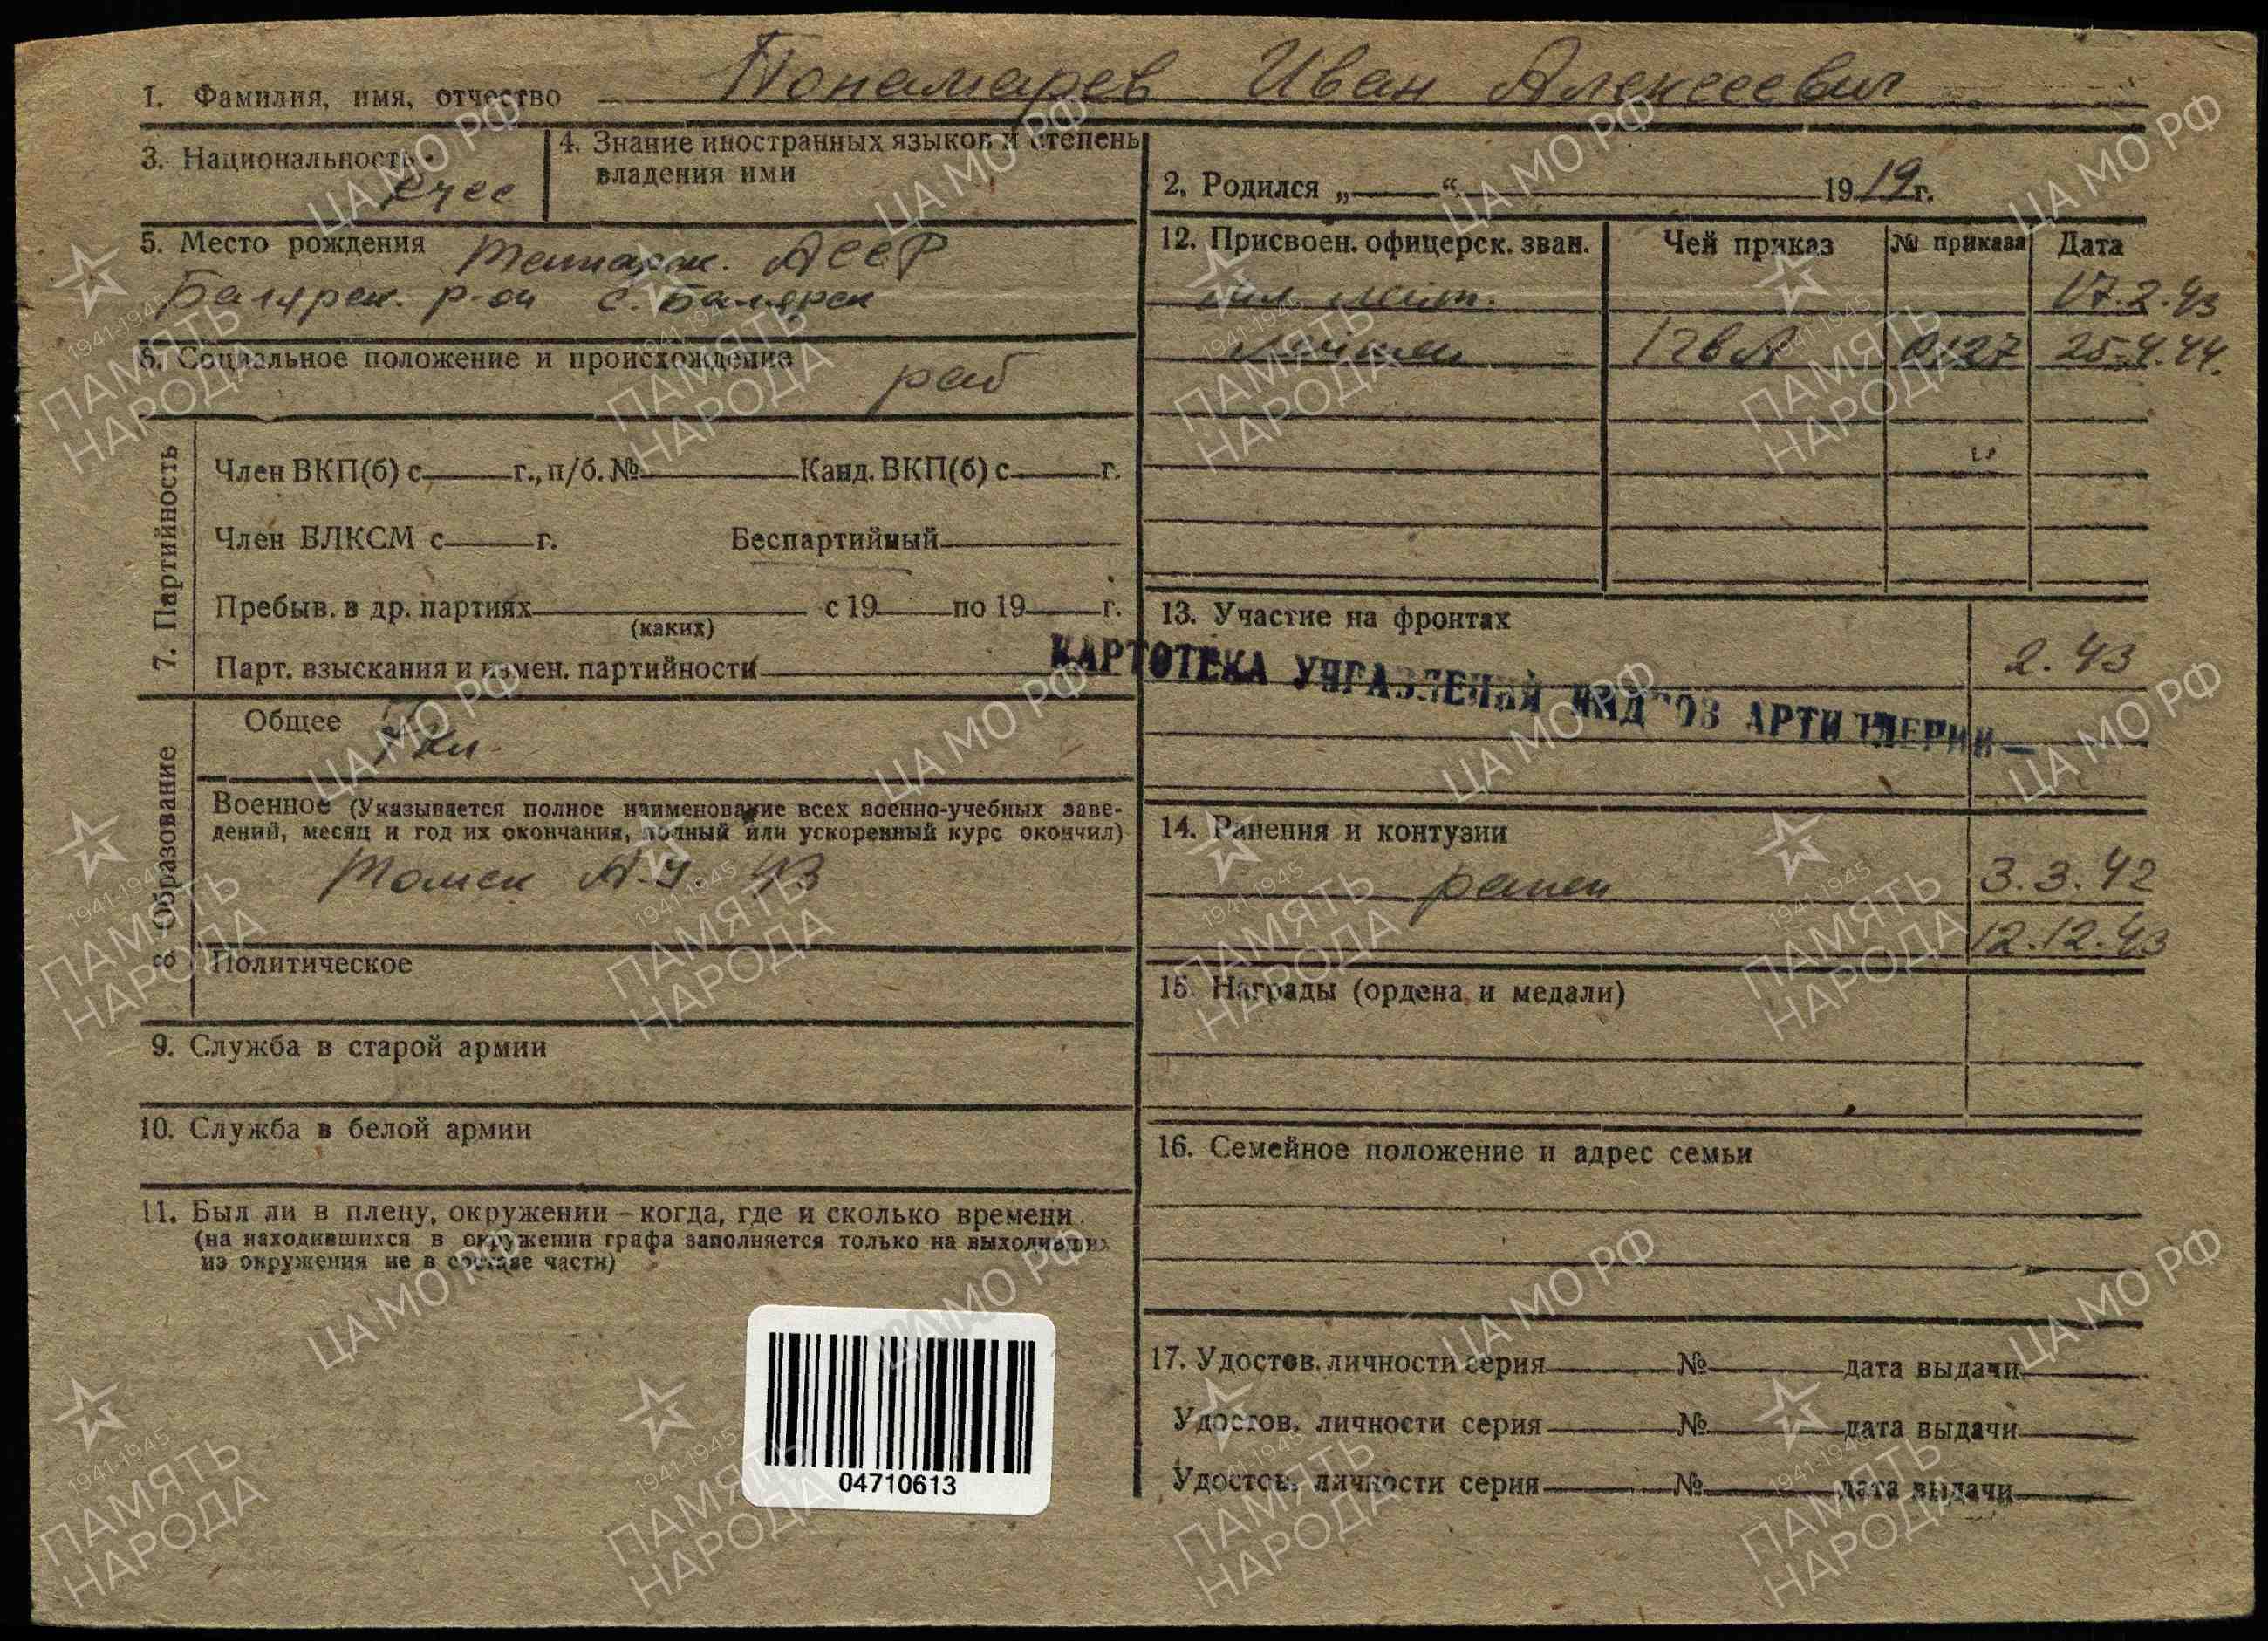 1. Фамилия, имя, отчество Понамарев Иван Алексеевич
3. Национальность
4. Знание иностранных языков и степень
владения ими
2. Родился „ “ 1919 г.
5. Место рождения Татарск. АССР
Билярск. р-он с. Билярск
6. Социальное положение и происхождение раб
7. Партийность
Член ВКП(б) с г., п/б. № Канд. ВКП(б) с г.
Член ВЛКСМ с г. Беспартийный
Пребыв. в др. партиях с 19 по 19 г.
(каких)
Парт. взыскания и измен. партийности
8 Образование
Общее 7 кл.
Военное (Указывается полное наименование всех военно-учебных заве-
дений, месяц и год их окончания, полный или ускоренный курс окончил)
Томск А.У. 43
Политическое
9. Служба в старой армии
10. Служба в белой армии
11. Был ли в плену, окружении – когда, где и сколько времени
(на находившихся в окружении графа заполняется только на выходивших
из окружения не в составе части)
04710613
12. Присвоен. офицерск. зван. Чей приказ № приказа Дата
мл. лейт. 17.2.43
1 Гв А 0127 25.4.44.
13. Участие на фронтах
2.43
КАРТОТЕКА УПРАВЛЕНИЯ КАДРОВ АРТИЛЛЕРИИ
14. Ранения и контузии
ранен 3.3.42
12.12.43
15. Награды (ордена и медали)
16. Семейное положение и адрес семьи
17. Удостов. личности серия № дата выдачи
Удостов. личности серия № дата выдачи
Удостов. личности серия № дата выдачи
ЦА МО РФ
1941-1945
ПАМЯТЬ
НАРОДА